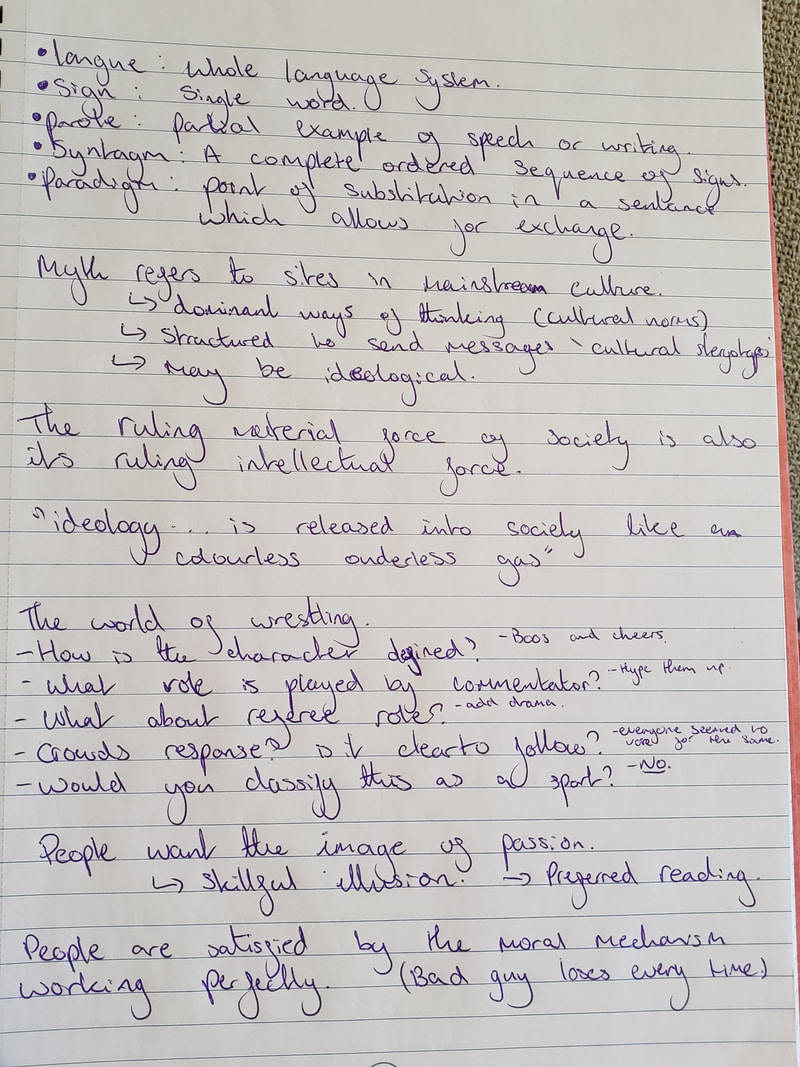 • Langue : Whole language system.
• Sign : Single word.
• Parole : partial example of speech or writing.
• Syntagm : A complete ordered sequence of signs.
• Paradigm : point of substitution in a sentance
which allows for exchange.
Myth refers to sites in mainstream culture.
↳ dominant ways of thinking (cultural norms)
↳ Structured to send messages 'cultural
↳ May be ideological.
The ruling material force of society is also
its ruling intellectual force.
"ideology... is released into society like an
colourless onderless gas"
The world of wrestling.
- How is the character defined? - Boos and cheers.
- What role is played by commentator? - Hype them up.
- What about referee roles? - add drama.
- Crowds response? is it clear to follow? - everyone seemed to
vote for the same.
- Would you classify this as a sport? - No.
People want the image of passion.
↳ Skillful illusion. → Preferred reading.
People are satisfied by the moral mechanism
working perfectly. (Bad guy loses every time)